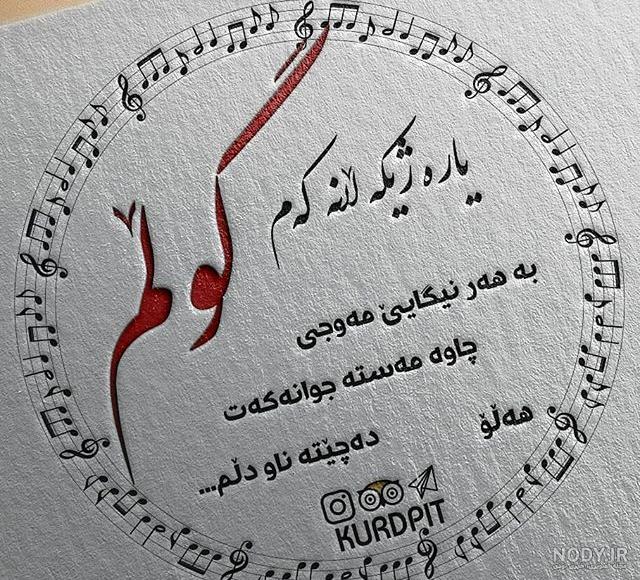 یارە ژیکە ڵانە کەم
گوڵم
بە هەر نیگایێ مەوجی
چاوە مەستە جوانەکەت
دەچێتە ناو دڵم...
هەڵۆ
KURDPIT
NODY.IR